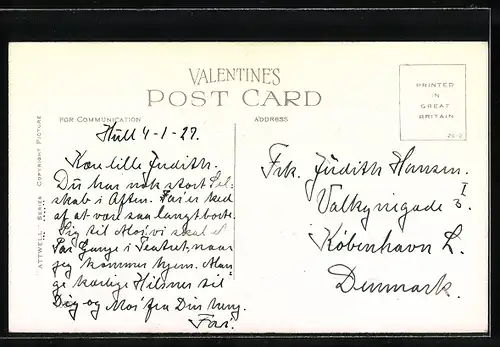 VALENTINE'S
POST CARD
FOR COMMUNICATION
ADDRESS
PRINTED
IN
GREAT
BRITAIN
ATTWELL SERIES COPYRIGHT PICTURE
Hull 4-1-27.
Kære lille Judith.
Du har nok stort Sel-
skab i Aften. Far er ked
af at være saa langt borte.
Sig til Mo'r vi skal et
Par Gange i Teatret, naar
jeg kommer hjem. Man-
ge kærlige Hilsner til
Dig og Mo'r fra Din
Far.
Frk. Judith Hansen.
Valkyriegade 3. I
København L.
Denmark.